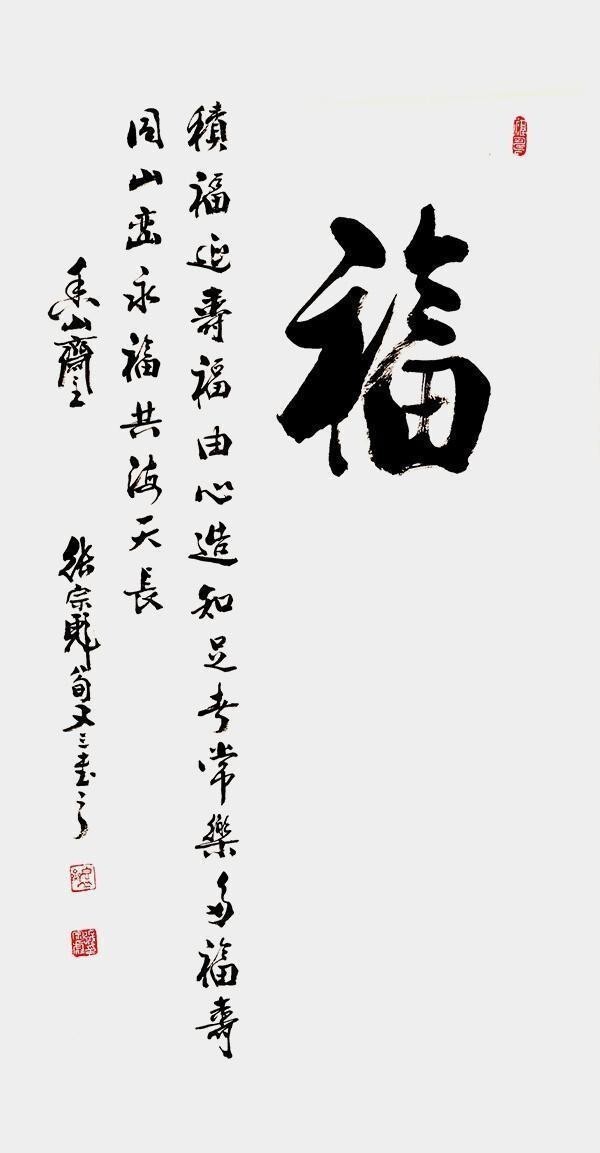 福
積福延壽福由心造知足者常樂多福壽
同山峦永福共海天長
山齋主
張宗彪旬又三書